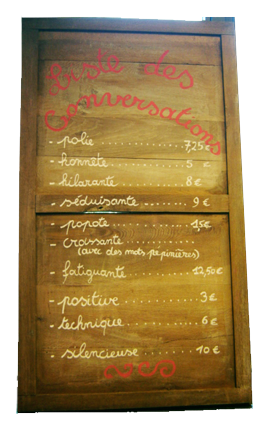 Liste des
Conversations
- polie ............... 7,25€
- honnête ............. 5 €
- hilarante ........... 8€
- séduisante .......... 9€
- popote .............. 1,5€
- croissante ..............
(avec des mots pépinières)
- fatiguante .......... 12,50€
- positive ............ 3€
- technique ........... 6€
- silencieuse ......... 10€